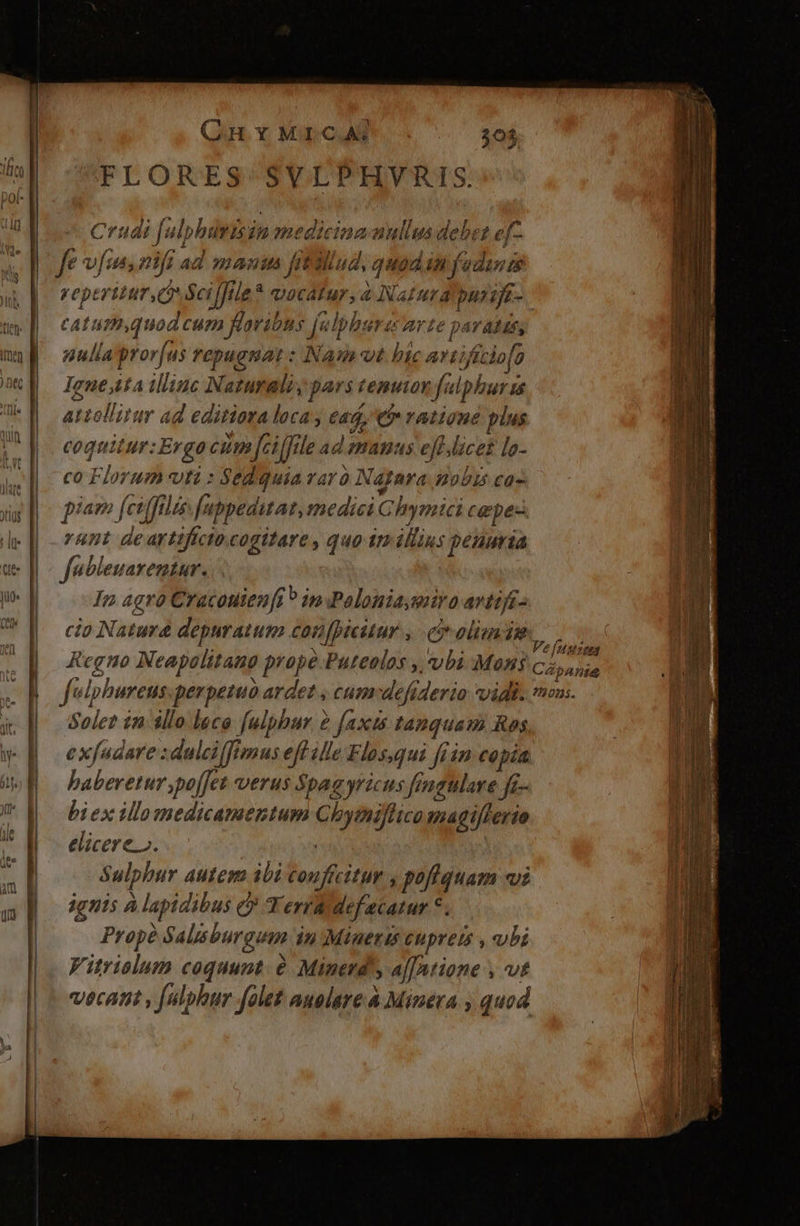 CHYMICAI 303
FLORES SVLPHVRIS.
Crudi ſulphuris in medicina nullus debet eſ-
ſe vſus, niſi ad manus ſit illud, quod in fodinis
reperitur, & Sciſſile ᵃ vocatur, à Natura purifi-
catum, quod cum floribus ſulphuris arte paratis,
nulla prorſus repugnat : Nam vt hic artificioſo
Igne, ita illinc Naturali, pars tenuior ſulphuris
attollitur ad editiora loca, eaq́, & ratione plus
coquitur: Ergo cùm ſciſſile ad manus eſt, licet lo-
co Florum vti : Sed quia rarò Natura nobis co-
piam ſciſſilis ſuppeditat, medici Chymici cœpe-
runt de artificio cogitare, quo in illius penuria
ſubleuarentur.
In agro Cracouienſi ᵇ in Polonia, miro artifi-
cio Naturæ depuratum conſpicitur, & olim in
Regno Neapolitano propè Puteolos, vbi Mons
ſulphureus perpetuò ardet, cum deſiderio vidi.
Veſuuius
Cāpaniæ
mons.
Solet in illo loco ſulphur è ſaxis tanquam Ros
exſudare : dulciſſimus eſt ille Flos, qui ſi in copia
haberetur, poſſet verus Spagyricus ſingulare ſi-
bi ex illo medicamentum Chymiſtico magiſterio
elicere.
Sulphur autem ibi conficitur, poſtquam vi
ignis à lapidibus & Terra defæcatur ᶜ.
Propè Salisburgum in Mineris cupreis, vbi
Vitriolum coquunt è Minera, aſſatione, vt
vocant, ſulphur ſolet auolare à Minera, quod